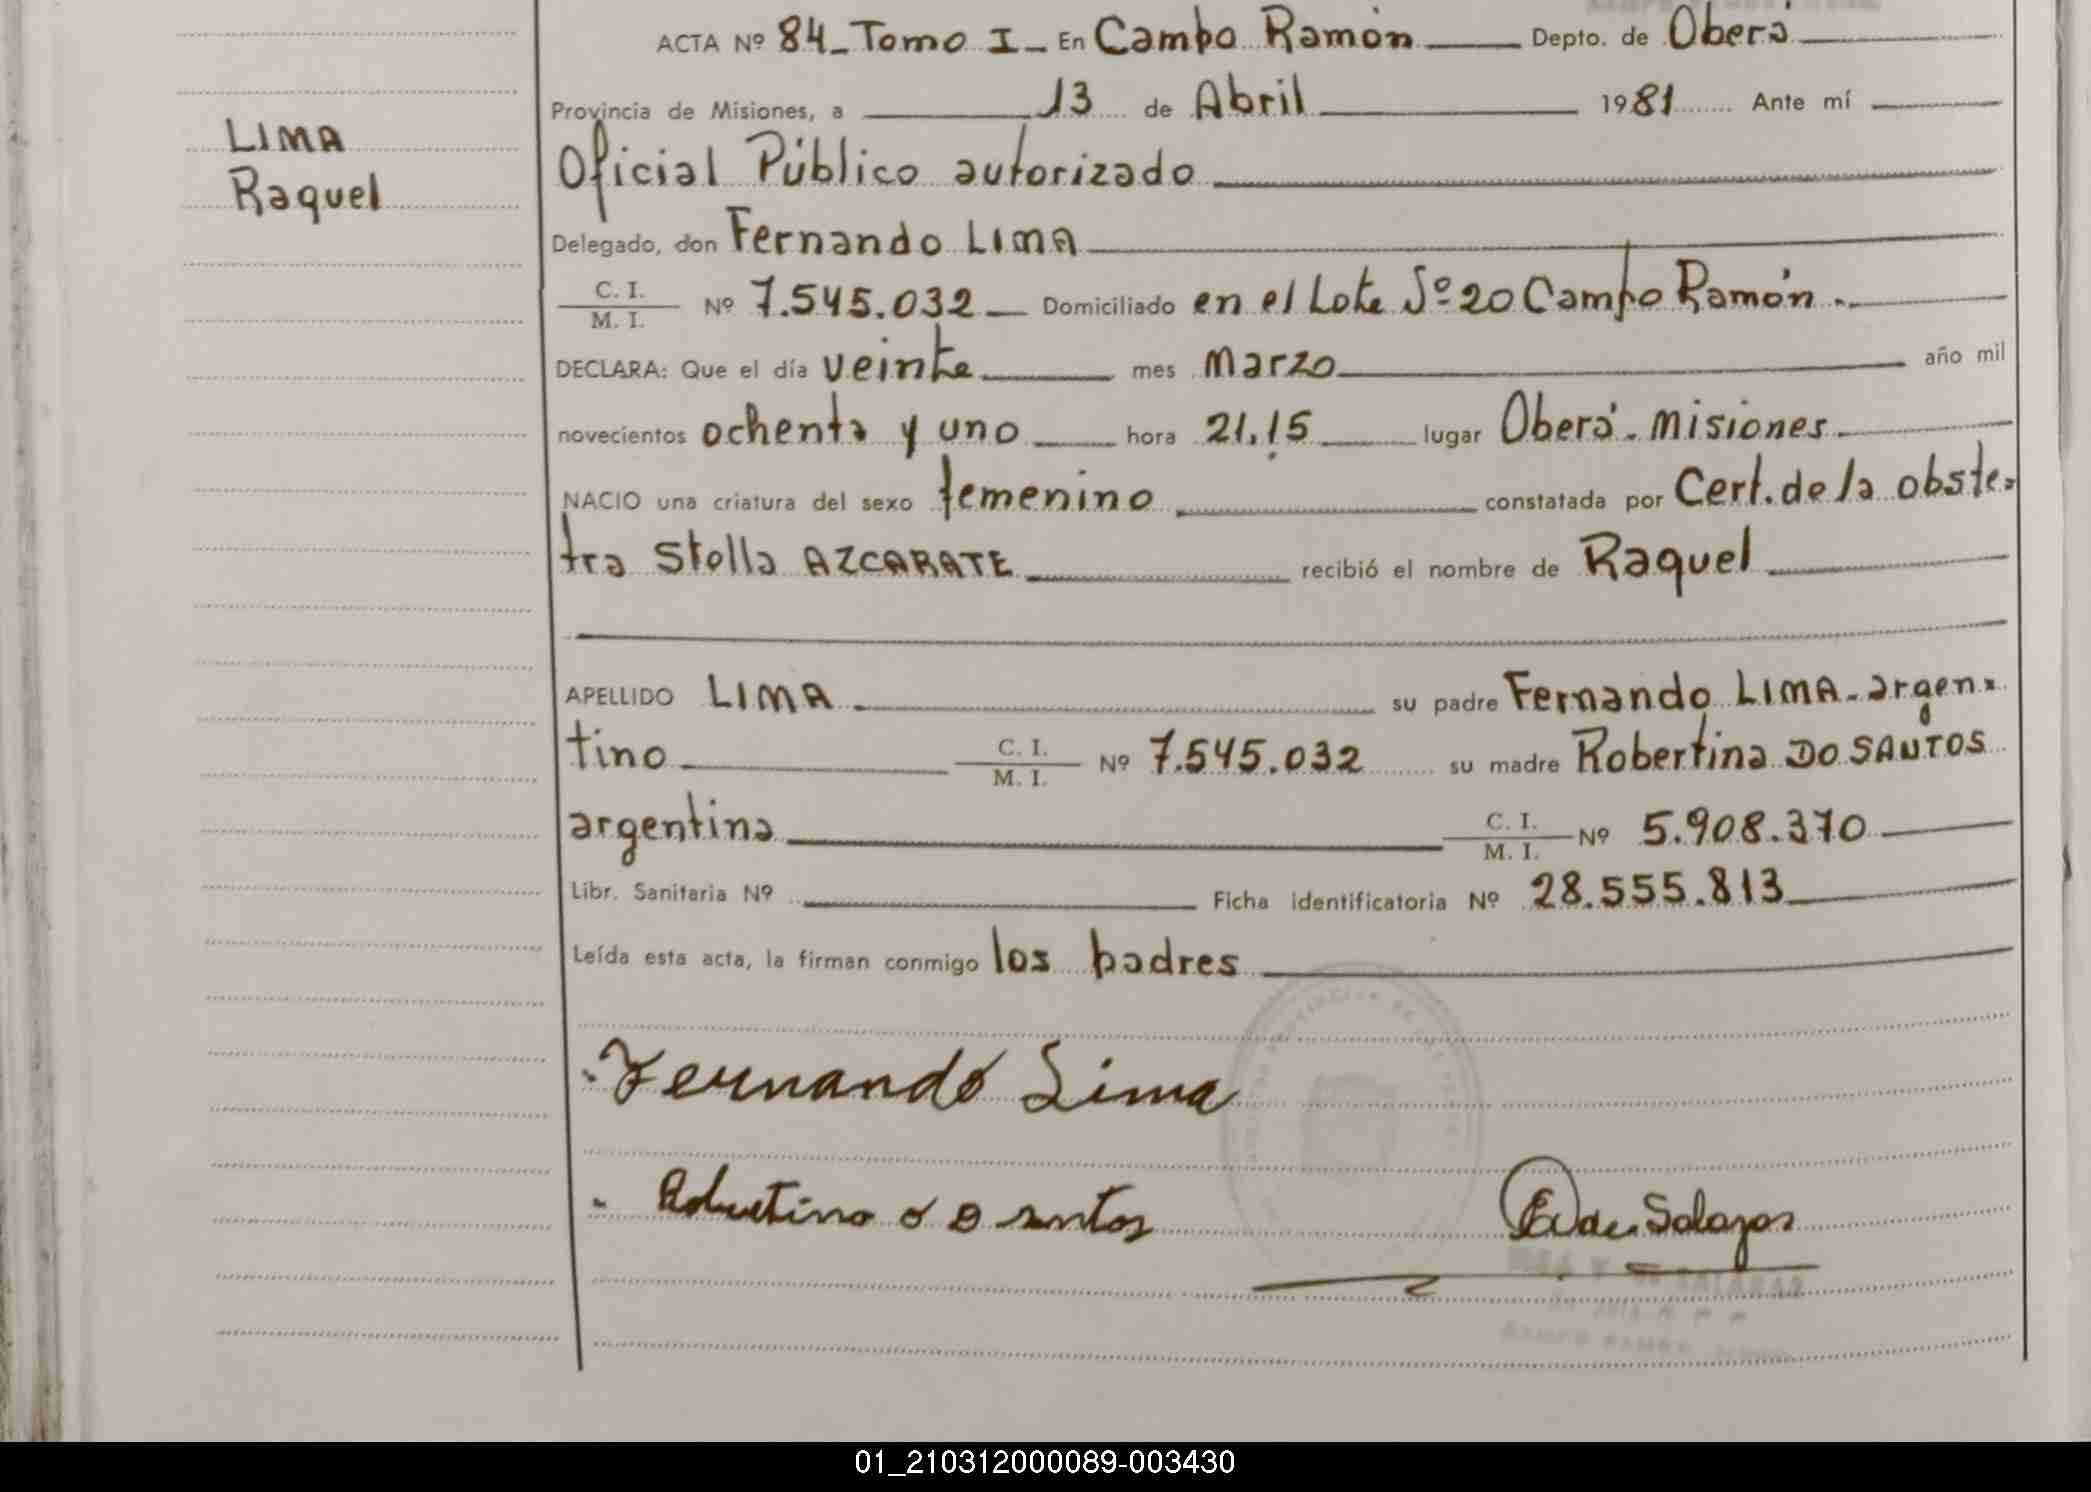 ACTA Nº 84 - Tomo I - En Campo Ramón Depto. de Oberá
Provincia de Misiones, a 13 de Abril 1981 Ante mí
LIMA
Raquel
Oficial Público autorizado
Delegado, don Fernando LIMA
C. I.
M. I. Nº 7.545.032 Domiciliado en el Lote Nº 20 Campo Ramón.-
DECLARA: Que el día veinte mes marzo año mil
novecientos ochenta y uno hora 21,15 lugar Oberá - misiones
NACIO una criatura del sexo femenino constatada por Cert. de la obste-
tra Stella AZCARATE recibió el nombre de Raquel
APELLIDO LIMA su padre Fernando LIMA - argen-
tino C. I.
M. I. Nº 7.545.032 su madre Robertina DO SANTOS
argentina C. I.
M. I. Nº 5.908.370
Libr. Sanitaria Nº Ficha identificatoria Nº 28.555.813
Leída esta acta, la firman conmigo los padres
Fernando Lima
Robertina do santos
Salazar
SALAZAR
CAMPO RAMON
01_210312000089-003430